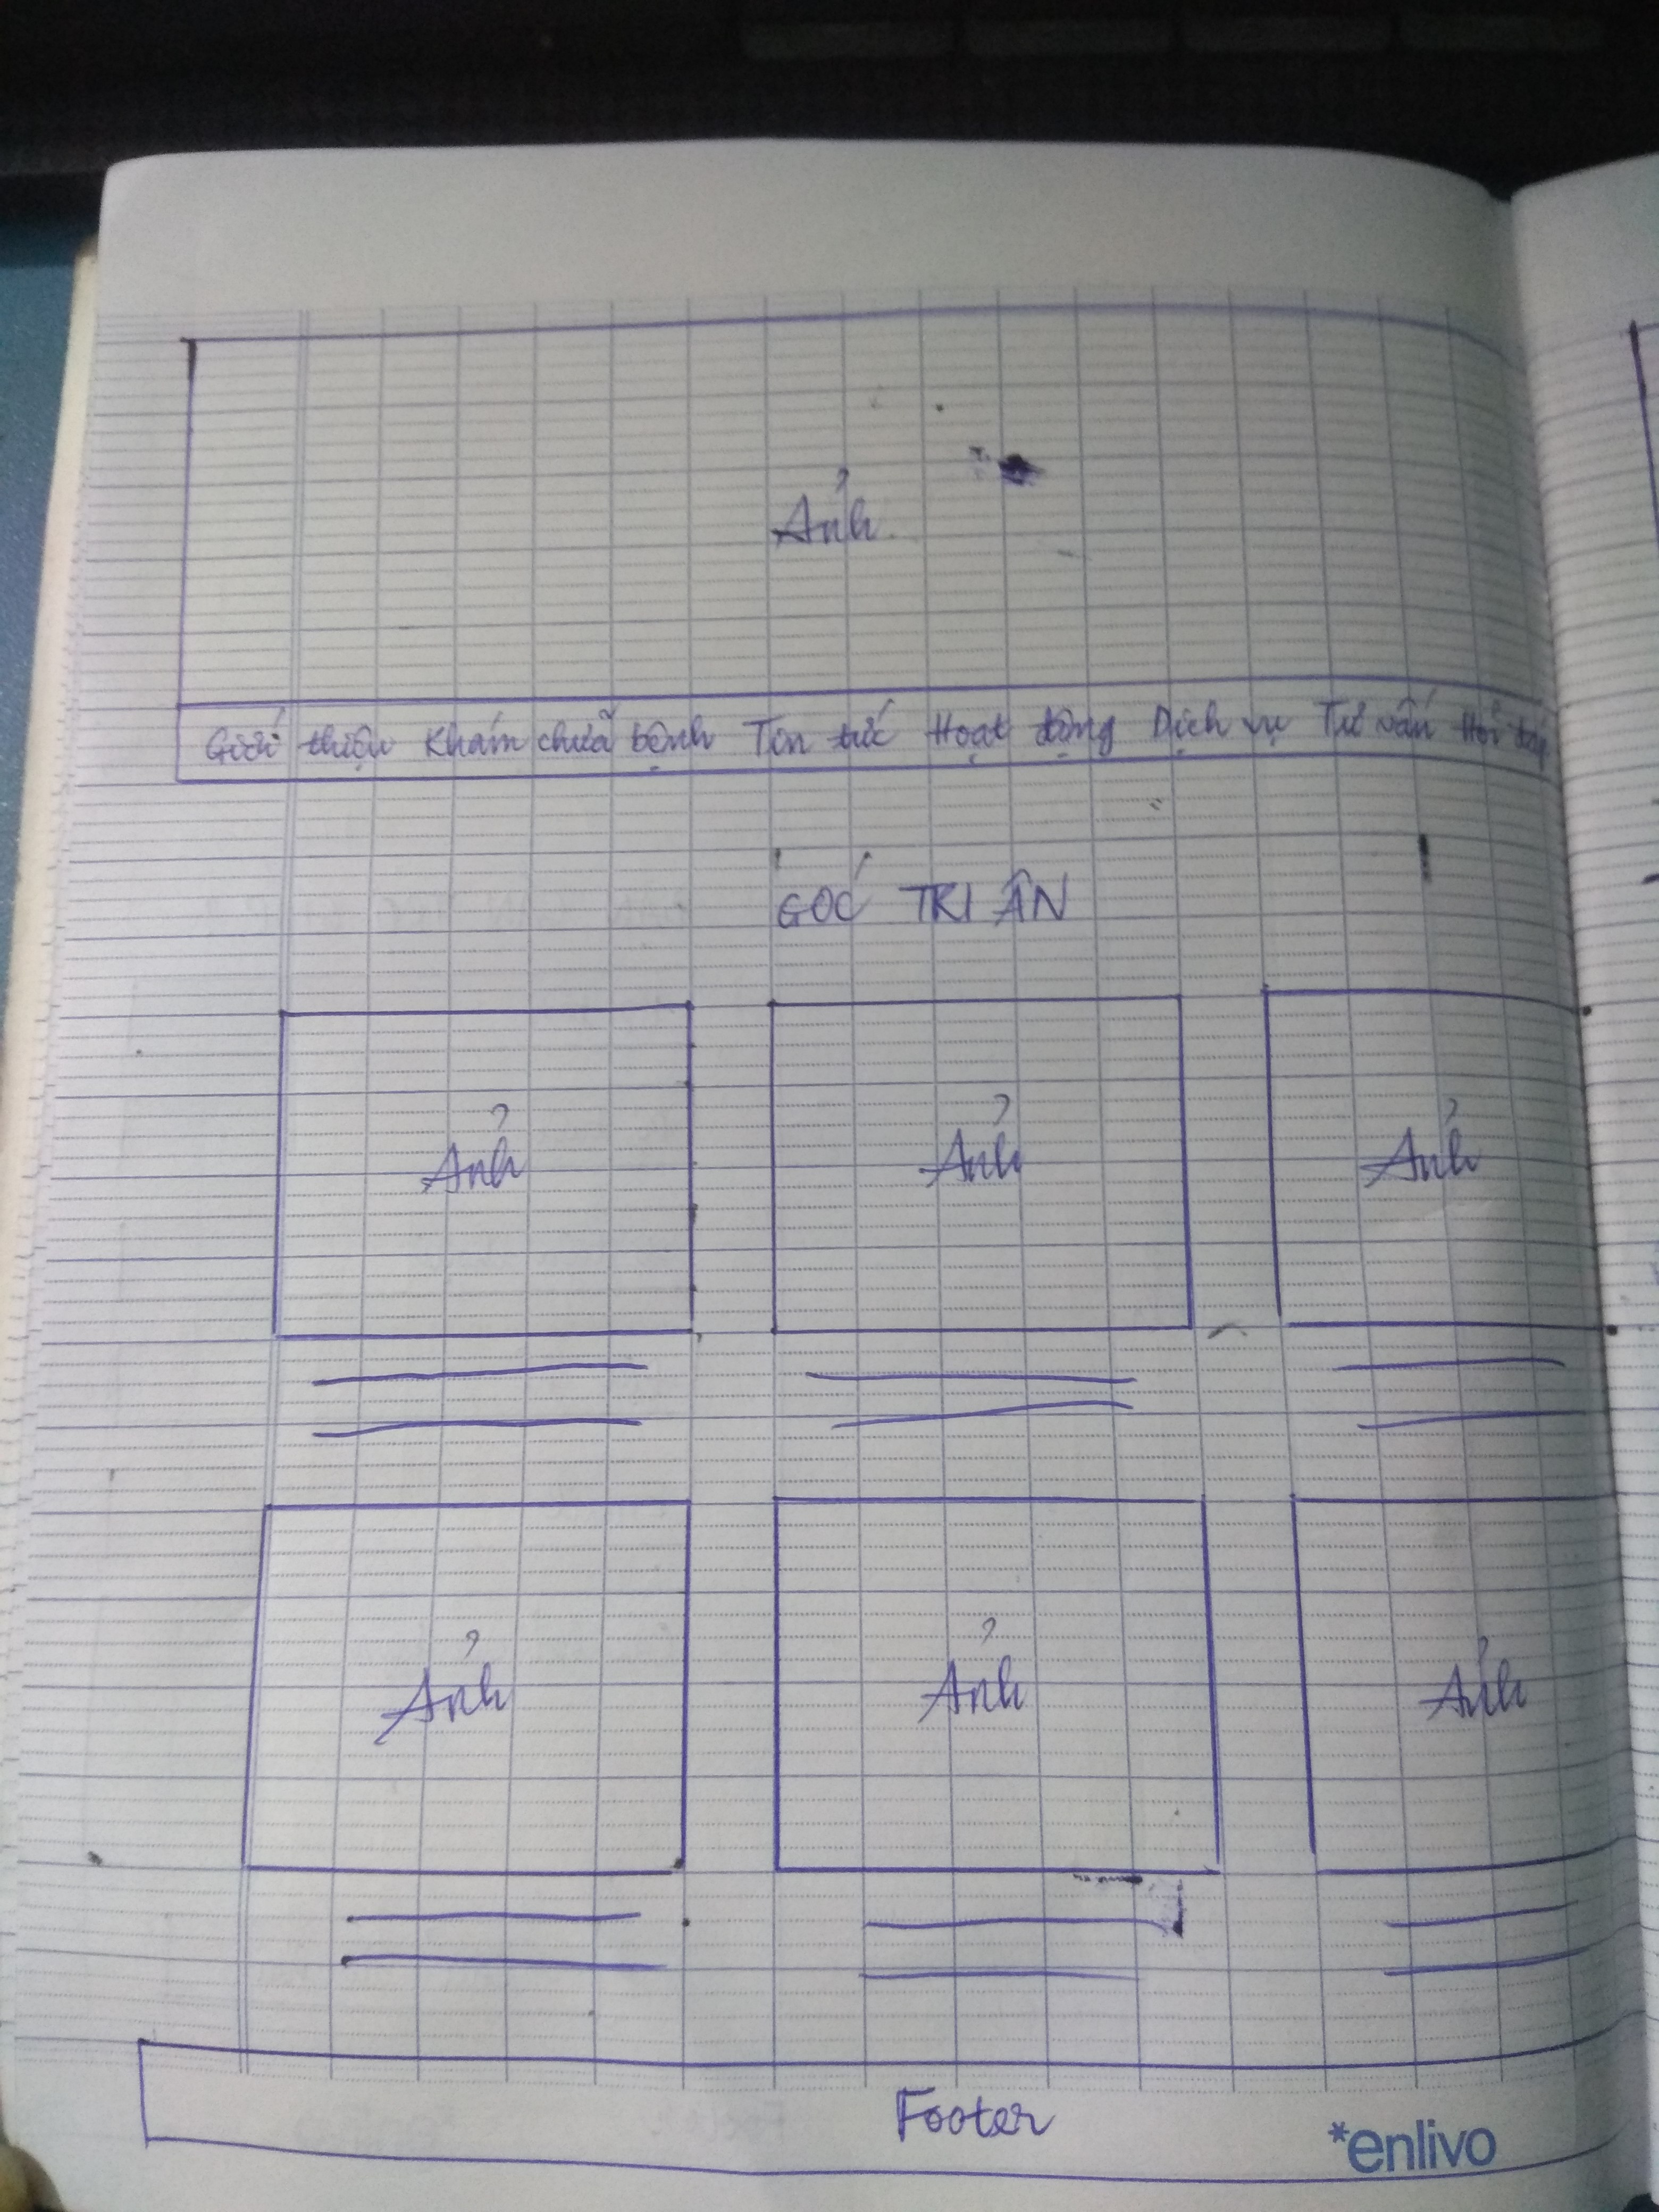 Ảnh
Giới thiệu Khám chữa bệnh Tin tức Hoạt động Dịch vụ Tư vấn Hỏi đáp
GÓC TRI ÂN
Ảnh Ảnh Ảnh
Ảnh Ảnh Ảnh
Footer
*enlivo